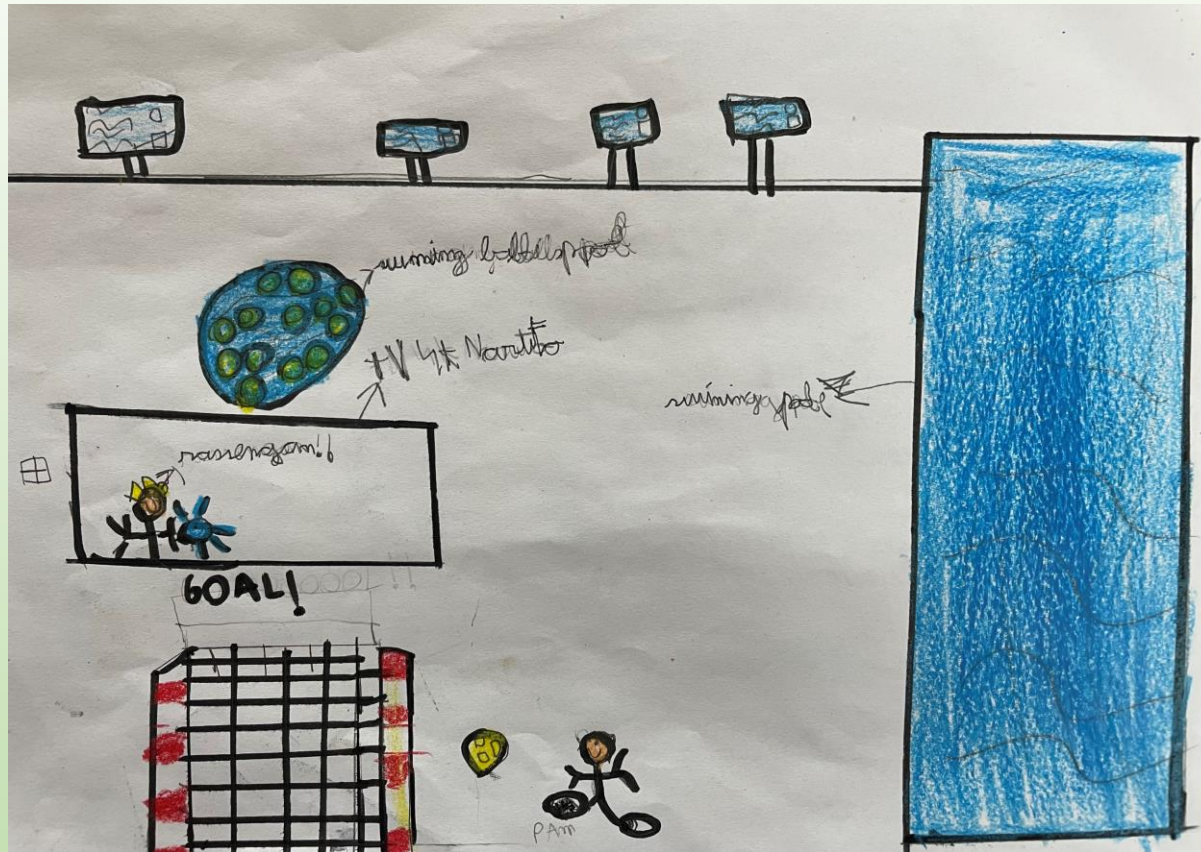 swimming ballspool
TV 4K Naruto
swimingpool
rassengan!!
GOAL!
PAM